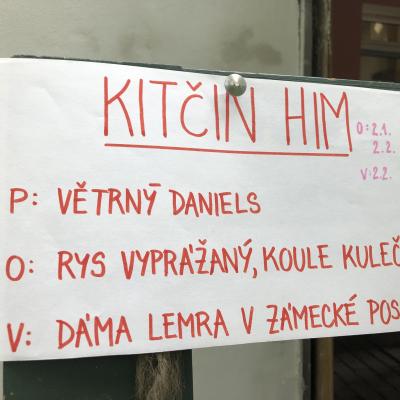 KITČIN HIM
O:2.1.
2.2.
V:2.2.
P: VĚTRNÝ DANIELS
O: RYS VYPRÁŽANÝ, KOULE KULEČ
V: DÁMA LEMRA V ZÁMECKÉ POS